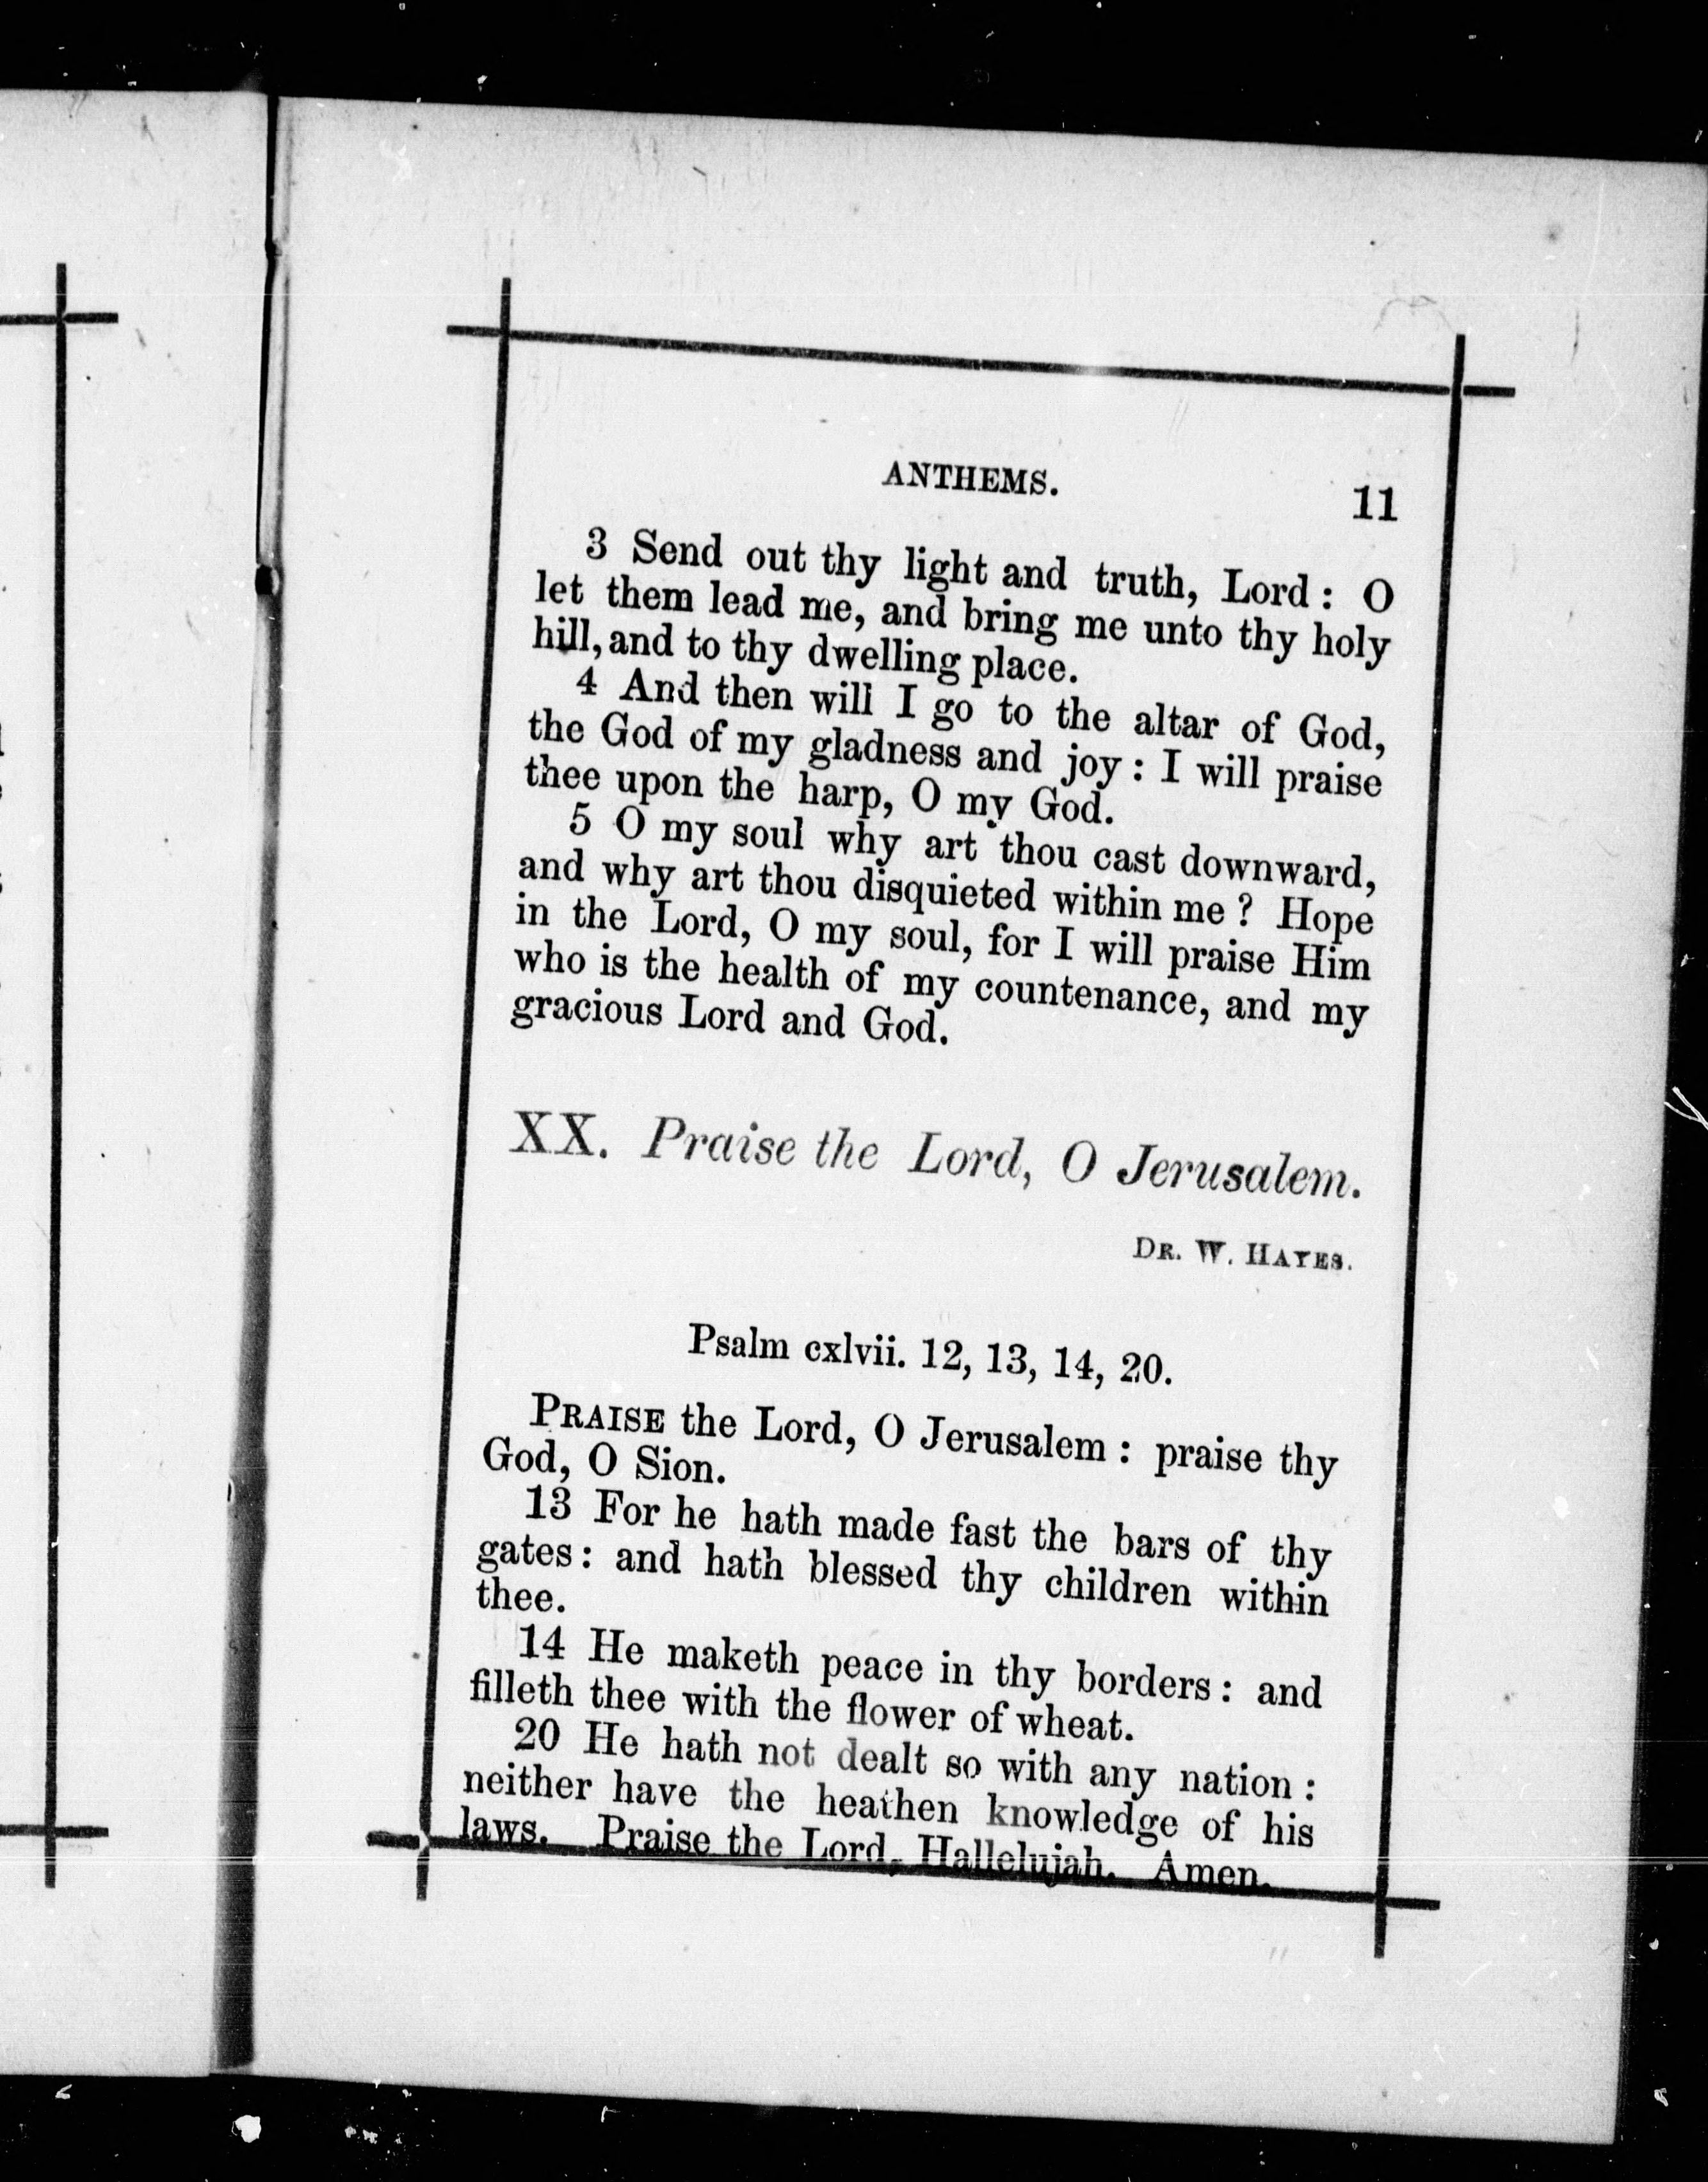 ANTHEMS.
11
3 Send out thy light and truth, Lord : O
let them lead me, and bring me unto thy holy
hill, and to thy dwelling place.
4 And then will I go to the altar of God,
the God of my gladness and joy : I will praise
thee upon the harp, O my God.
5 O my soul why art thou cast downward,
and why art thou disquieted within me ? Hope
in the Lord, O my soul, for I will praise Him
who is the health of my countenance, and my
gracious Lord and God.
XX. Praise the Lord, O Jerusalem.
DR. W. HAYES.
Psalm cxlvii. 12, 13, 14, 20.
PRAISE the Lord, O Jerusalem : praise thy
God, O Sion.
13 For he hath made fast the bars of thy
gates : and hath blessed thy children within
thee.
14 He maketh peace in thy borders : and
filleth thee with the flower of wheat.
20 He hath not dealt so with any nation :
neither have the heathen knowledge of his
laws. Praise the Lord, Hallelujah. Amen.